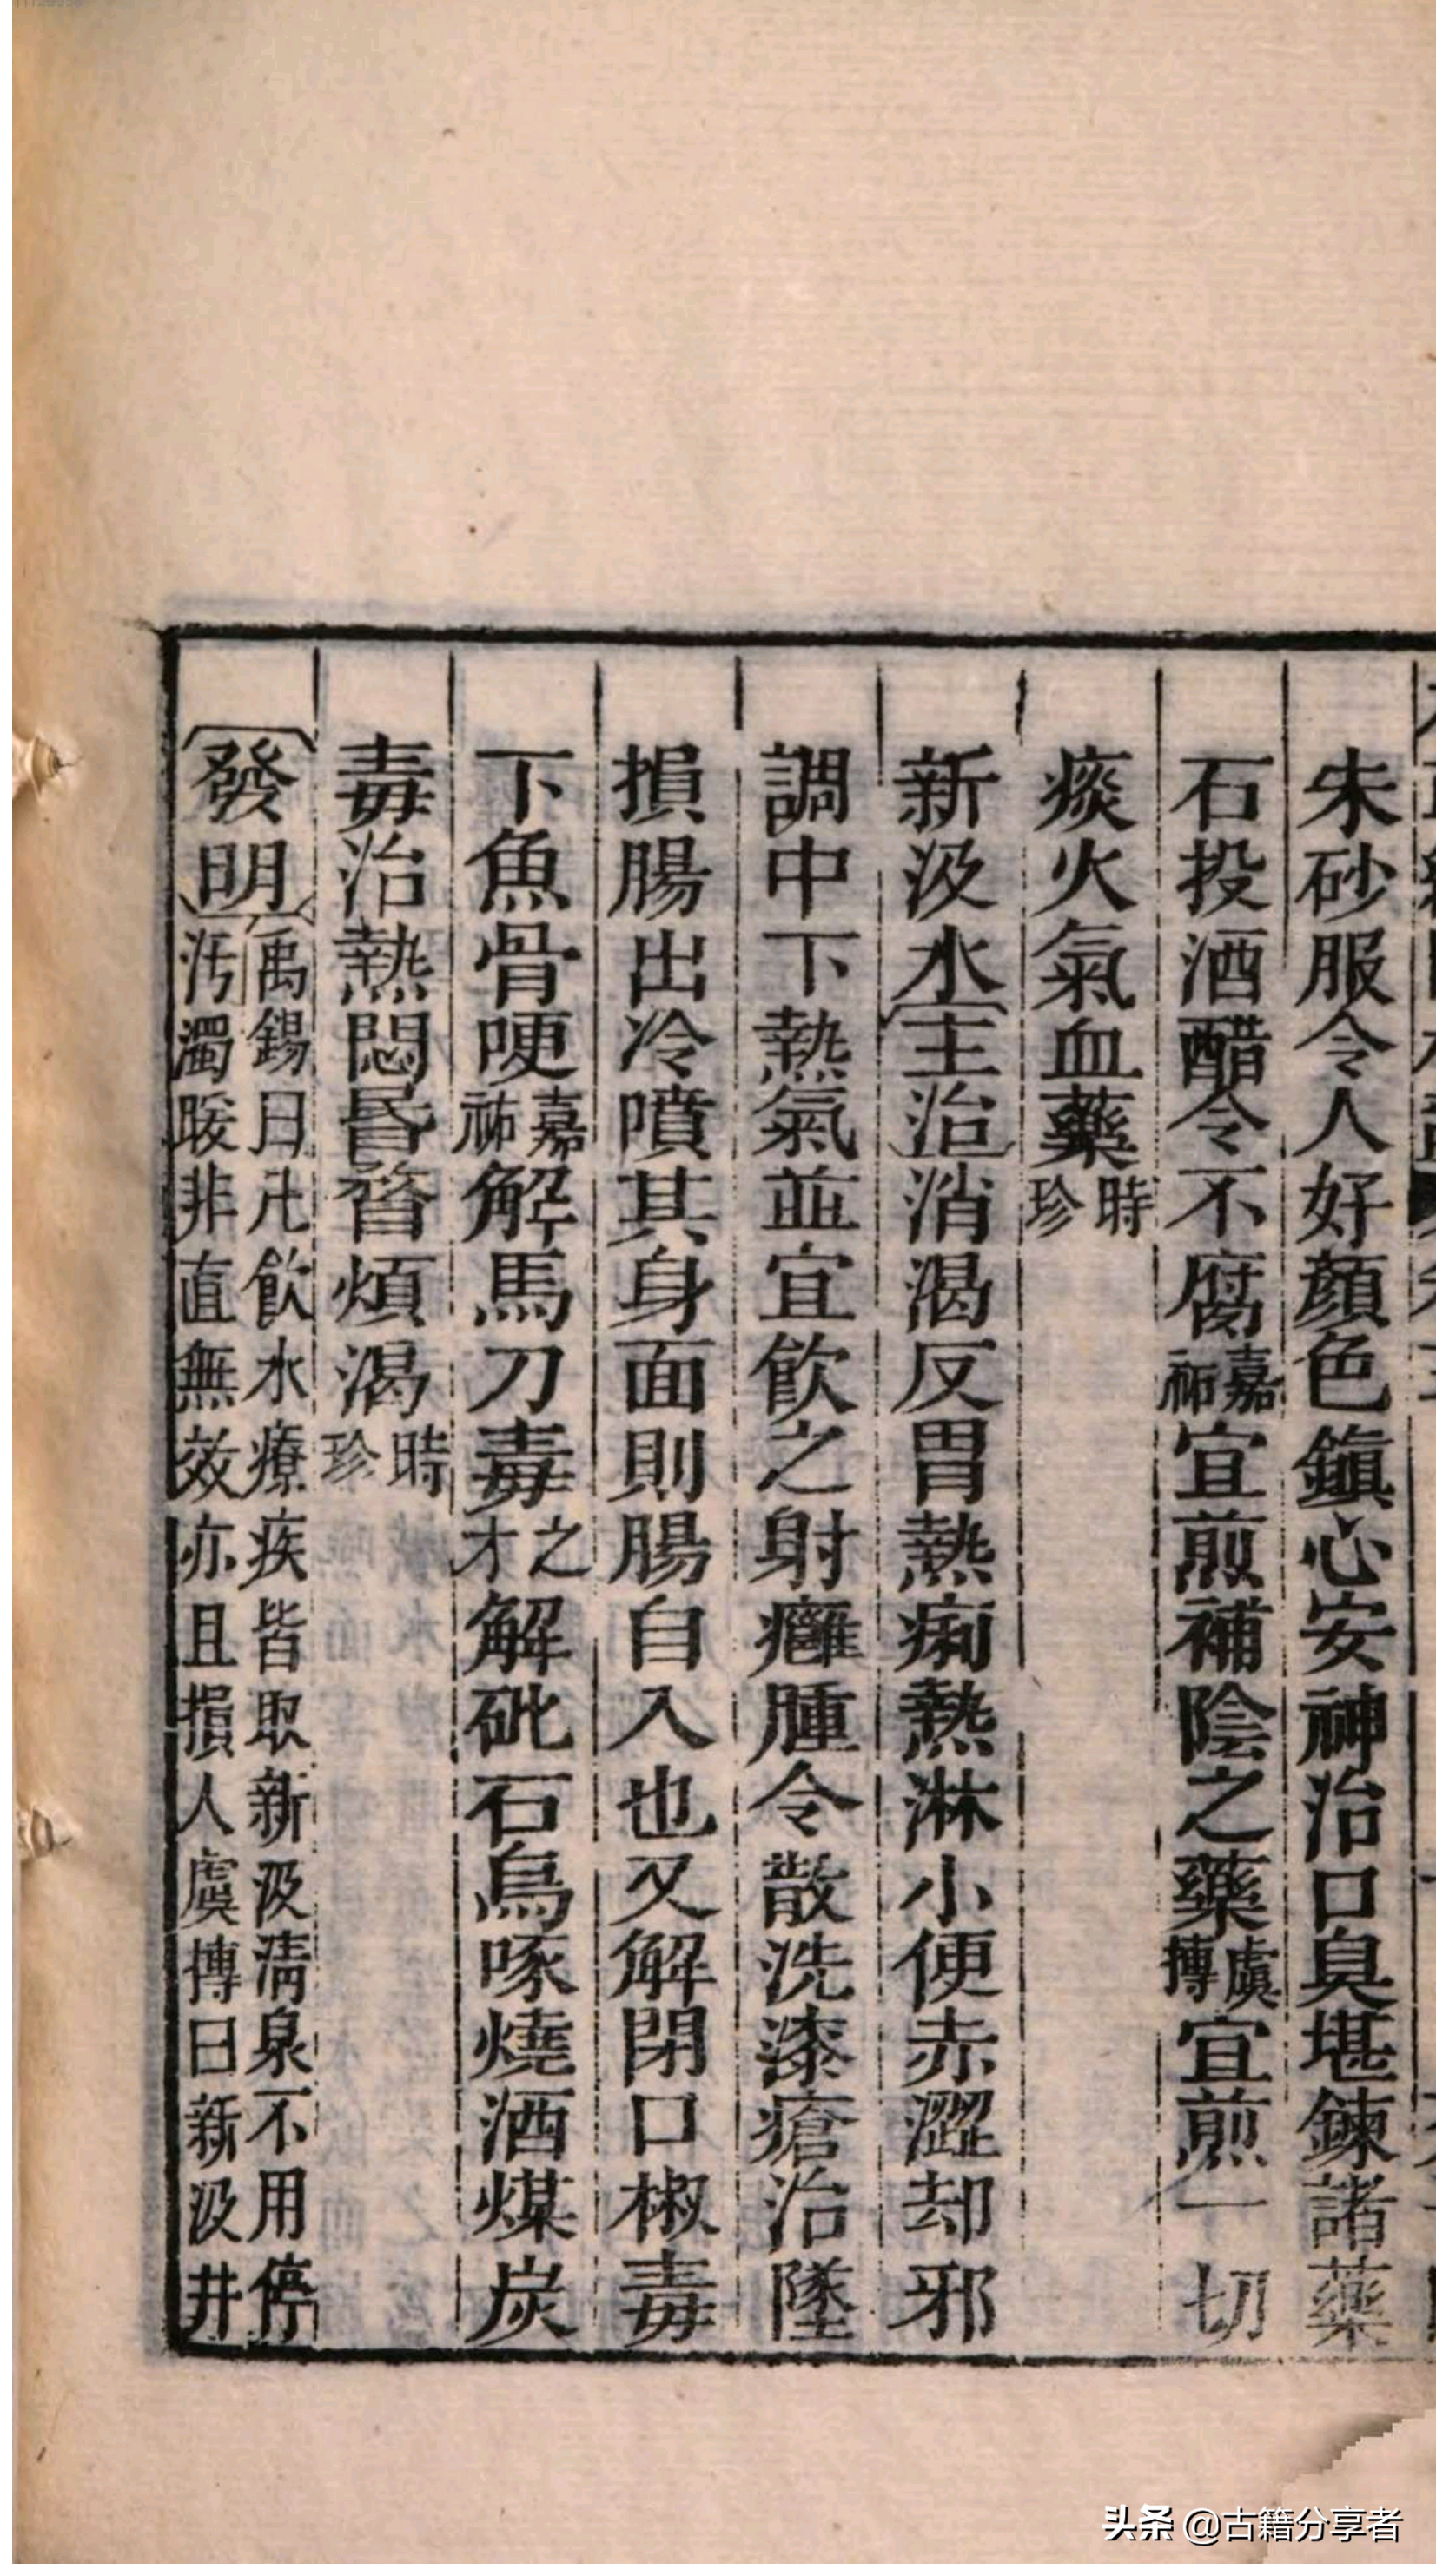 朱砂服令人好顏色鎭心安神治口臭堪鍊諸藥
石投酒醋令不腐嘉祐宜煎補陰之藥虞摶宜煎一切
痰火氣血藥時珍
新汲水〔主治〕消渴反胃熱痢熱淋小便赤澀却邪
調中下熱氣並宜飮之射癰腫令散洗漆瘡治墜
損腸出冷噴其身面則腸自入也又解閉口椒毒
下魚骨哽嘉祐解馬刀毒之才解砒石烏啄燒酒煤炭
毒治熱悶昏瞀煩渴時珍
〔發明〕禹錫曰凡飮水療疾皆取新汲淸泉不用停
汚濁暖非直無效亦且損人虞摶曰新汲井
头条 @古籍分享者